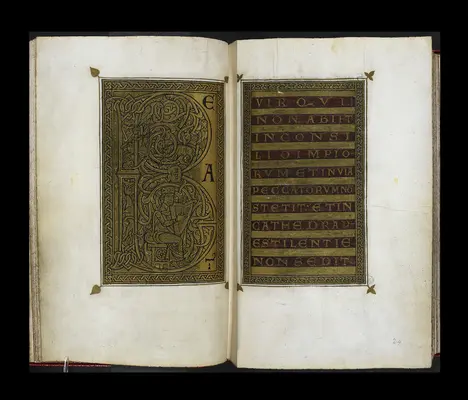 B
E
A
T
VIR QVI
NON ABIIT
IN CONSI
LIO IMPIO
RVM ET IN VIA
PECCATORVM NO
STETIT ET IN
CATHEDRA P
ESTILENTIE
NON SEDIT